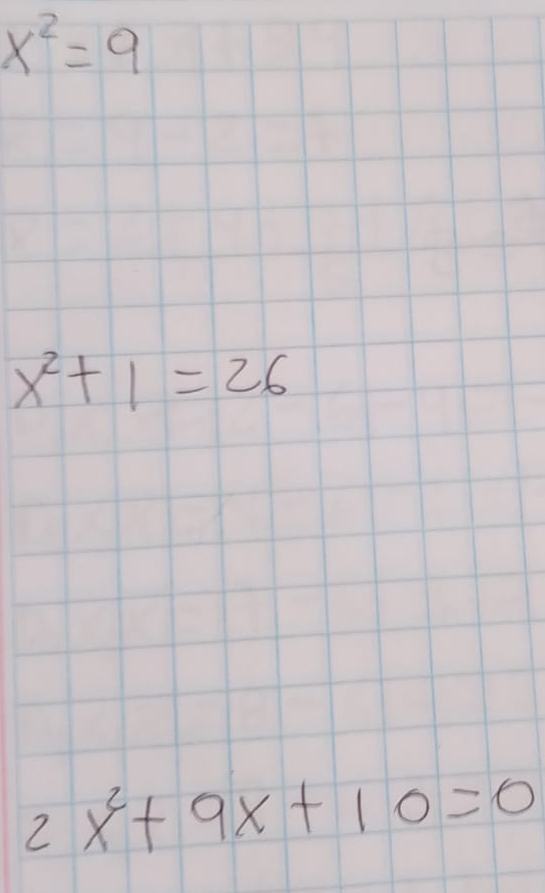 x² = 9
x² + 1 = 26
2x² + 9x + 10 = 0